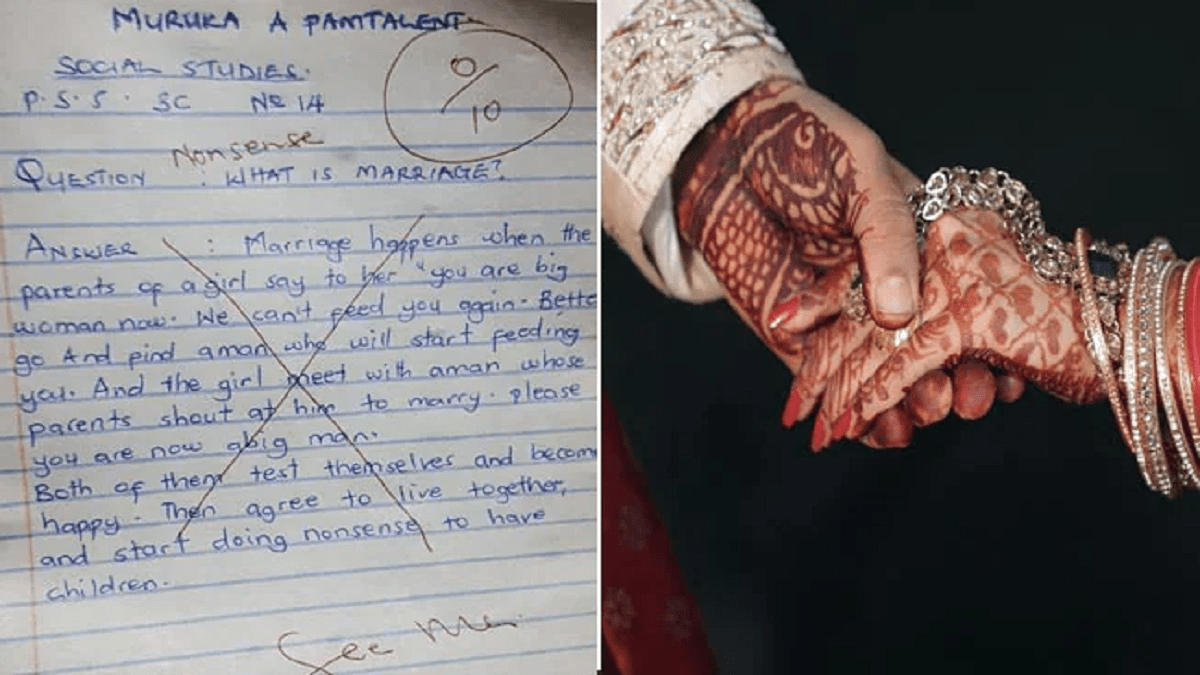 MURUKA A PAMTALENT
SOCIAL STUDIES.
0/10
P.S.S. SC No 14
Nonsense
QUESTION : WHAT IS MARRIAGE?
ANSWER : Marriage happens when the
parents of a girl say to her "you are big
woman now. We can't feed you again. Bette
go And find aman who will start feeding
you. And the girl meet with aman whose
parents shout at him to marry. please
you are now abig man.
Both of them test themselves and becom
happy. Then agree to live together,
and start doing nonsense to have
children.
See Me.